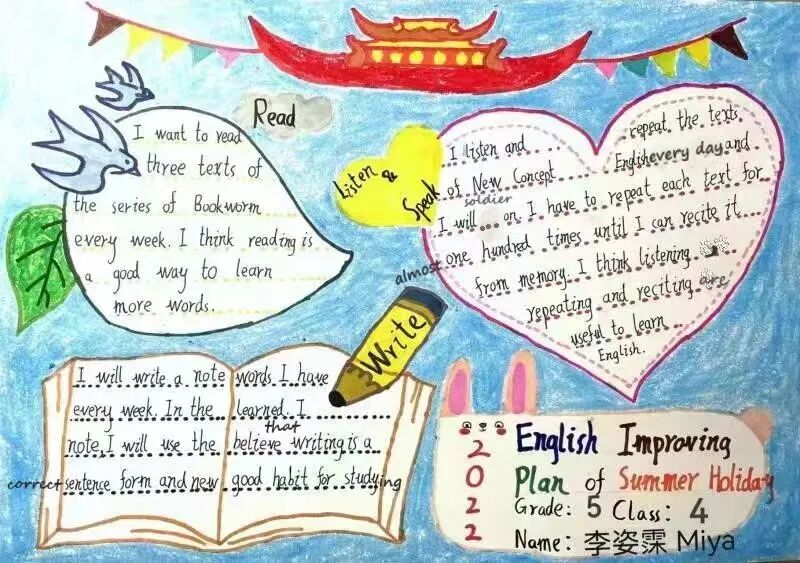 Read
I want to read
three texts of
the series of Bookworm
every week. I think reading is
a good way to learn
more words.
Listen &
Speak
I listen and repeat the texts
of New Concept English every day and
soldier
I will on. I have to repeat each text for
almost one hundred times until I can recite it
from memory. I think listening
repeating and reciting are
useful to learn
English.
Write
I will write a note
every week. In the
note, I will use the
correct sentence form and new
words I have
learned. I
that
believe writing is a
good habit for studying
2022
English Improving
Plan of Summer Holiday
Grade: 5 Class: 4
Name: 李姿霂 Miya